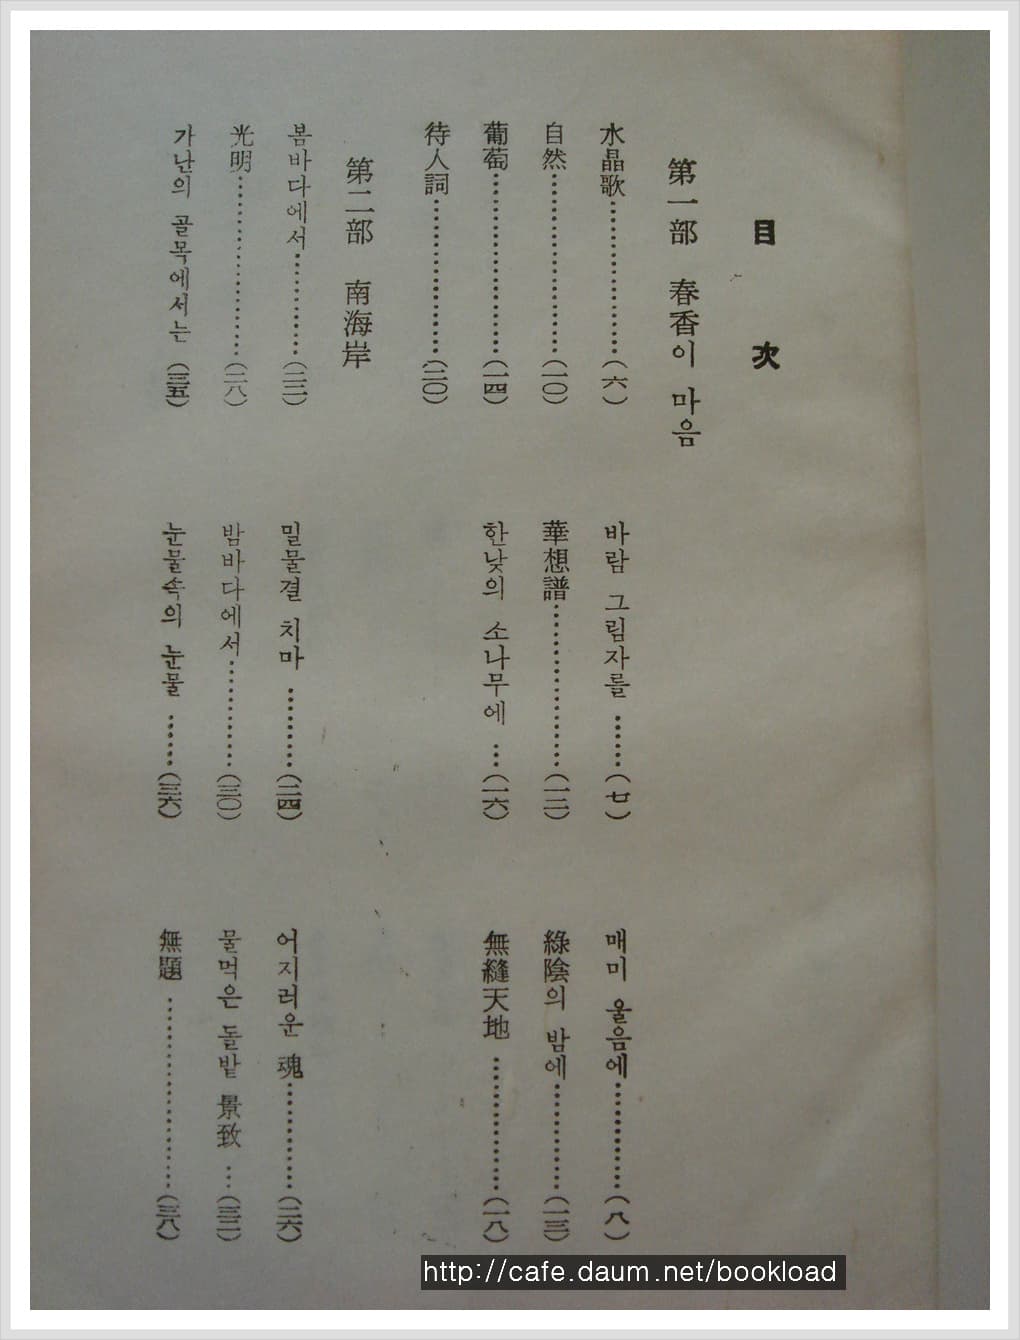 目 次
第一部 春香이 마음
水晶歌……………………(六)
바람 그림자를 ……(七)
매미 울음에…………(八)
自然……………………(一〇)
華想譜………………(一二)
綠陰의 밤에…………(一三)
葡萄……………………(一四)
한낮의 소나무에 …(一六)
無縫天地 ……………(一八)
待人詞…………………(二〇)
第二部 南海岸
봄바다에서……………(二二)
밀물결 치마 ………(二四)
어지러운 魂…………(二六)
光明……………………(二八)
밤바다에서…………(三〇)
물먹은 돌밭 景致 …(三二)
가난의 골목에서는 (三五)
눈물속의 눈물 ……(三六)
無題 …………………(三八)
http://cafe.daum.net/bookload